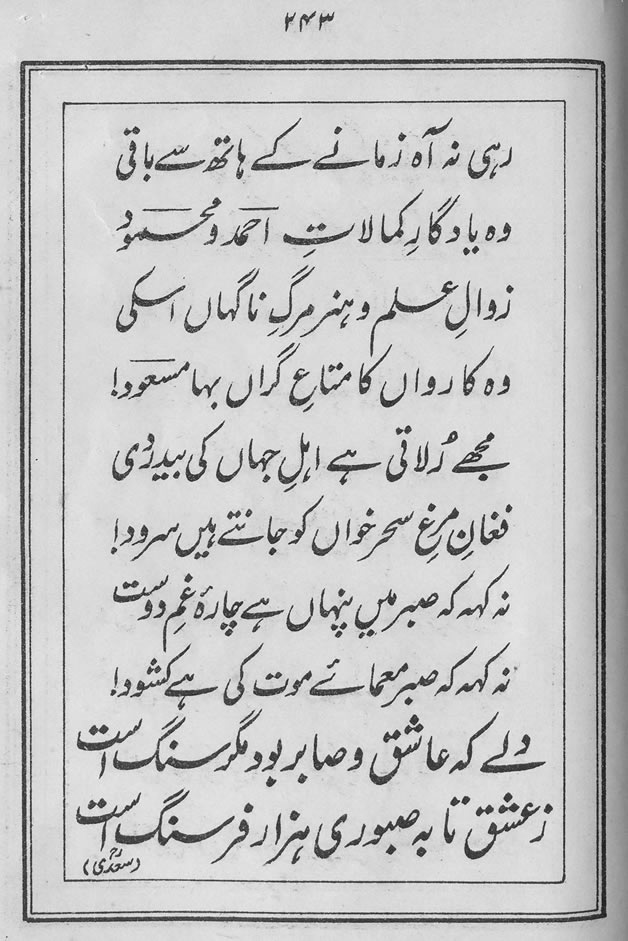 ۲۴۳
رہی نہ آہ زمانے کے ہاتھ سے باقی
وہ یادگارِ کمالاتِ احمد و محمود
زوالِ علم و ہنر مرگِ ناگہاں اسکی
وہ کارواں کا متاعِ گراں بہا مسعود!
مجھے رُلاتی ہے اہلِ جہاں کی بیدردی
فغانِ مرغِ سحر خواں کو جانتے ہیں سرود!
نہ کہہ کہ صبر میں پنہاں ہے چارۂ غمِ دوست
نہ کہہ کہ صبر معمائے موت کی ہے کشود!
دلے کہ عاشق و صابر بود مگر سنگ است
ز عشق تا بہ صبوری ہزار فرسنگ است
(سعدیؒ)